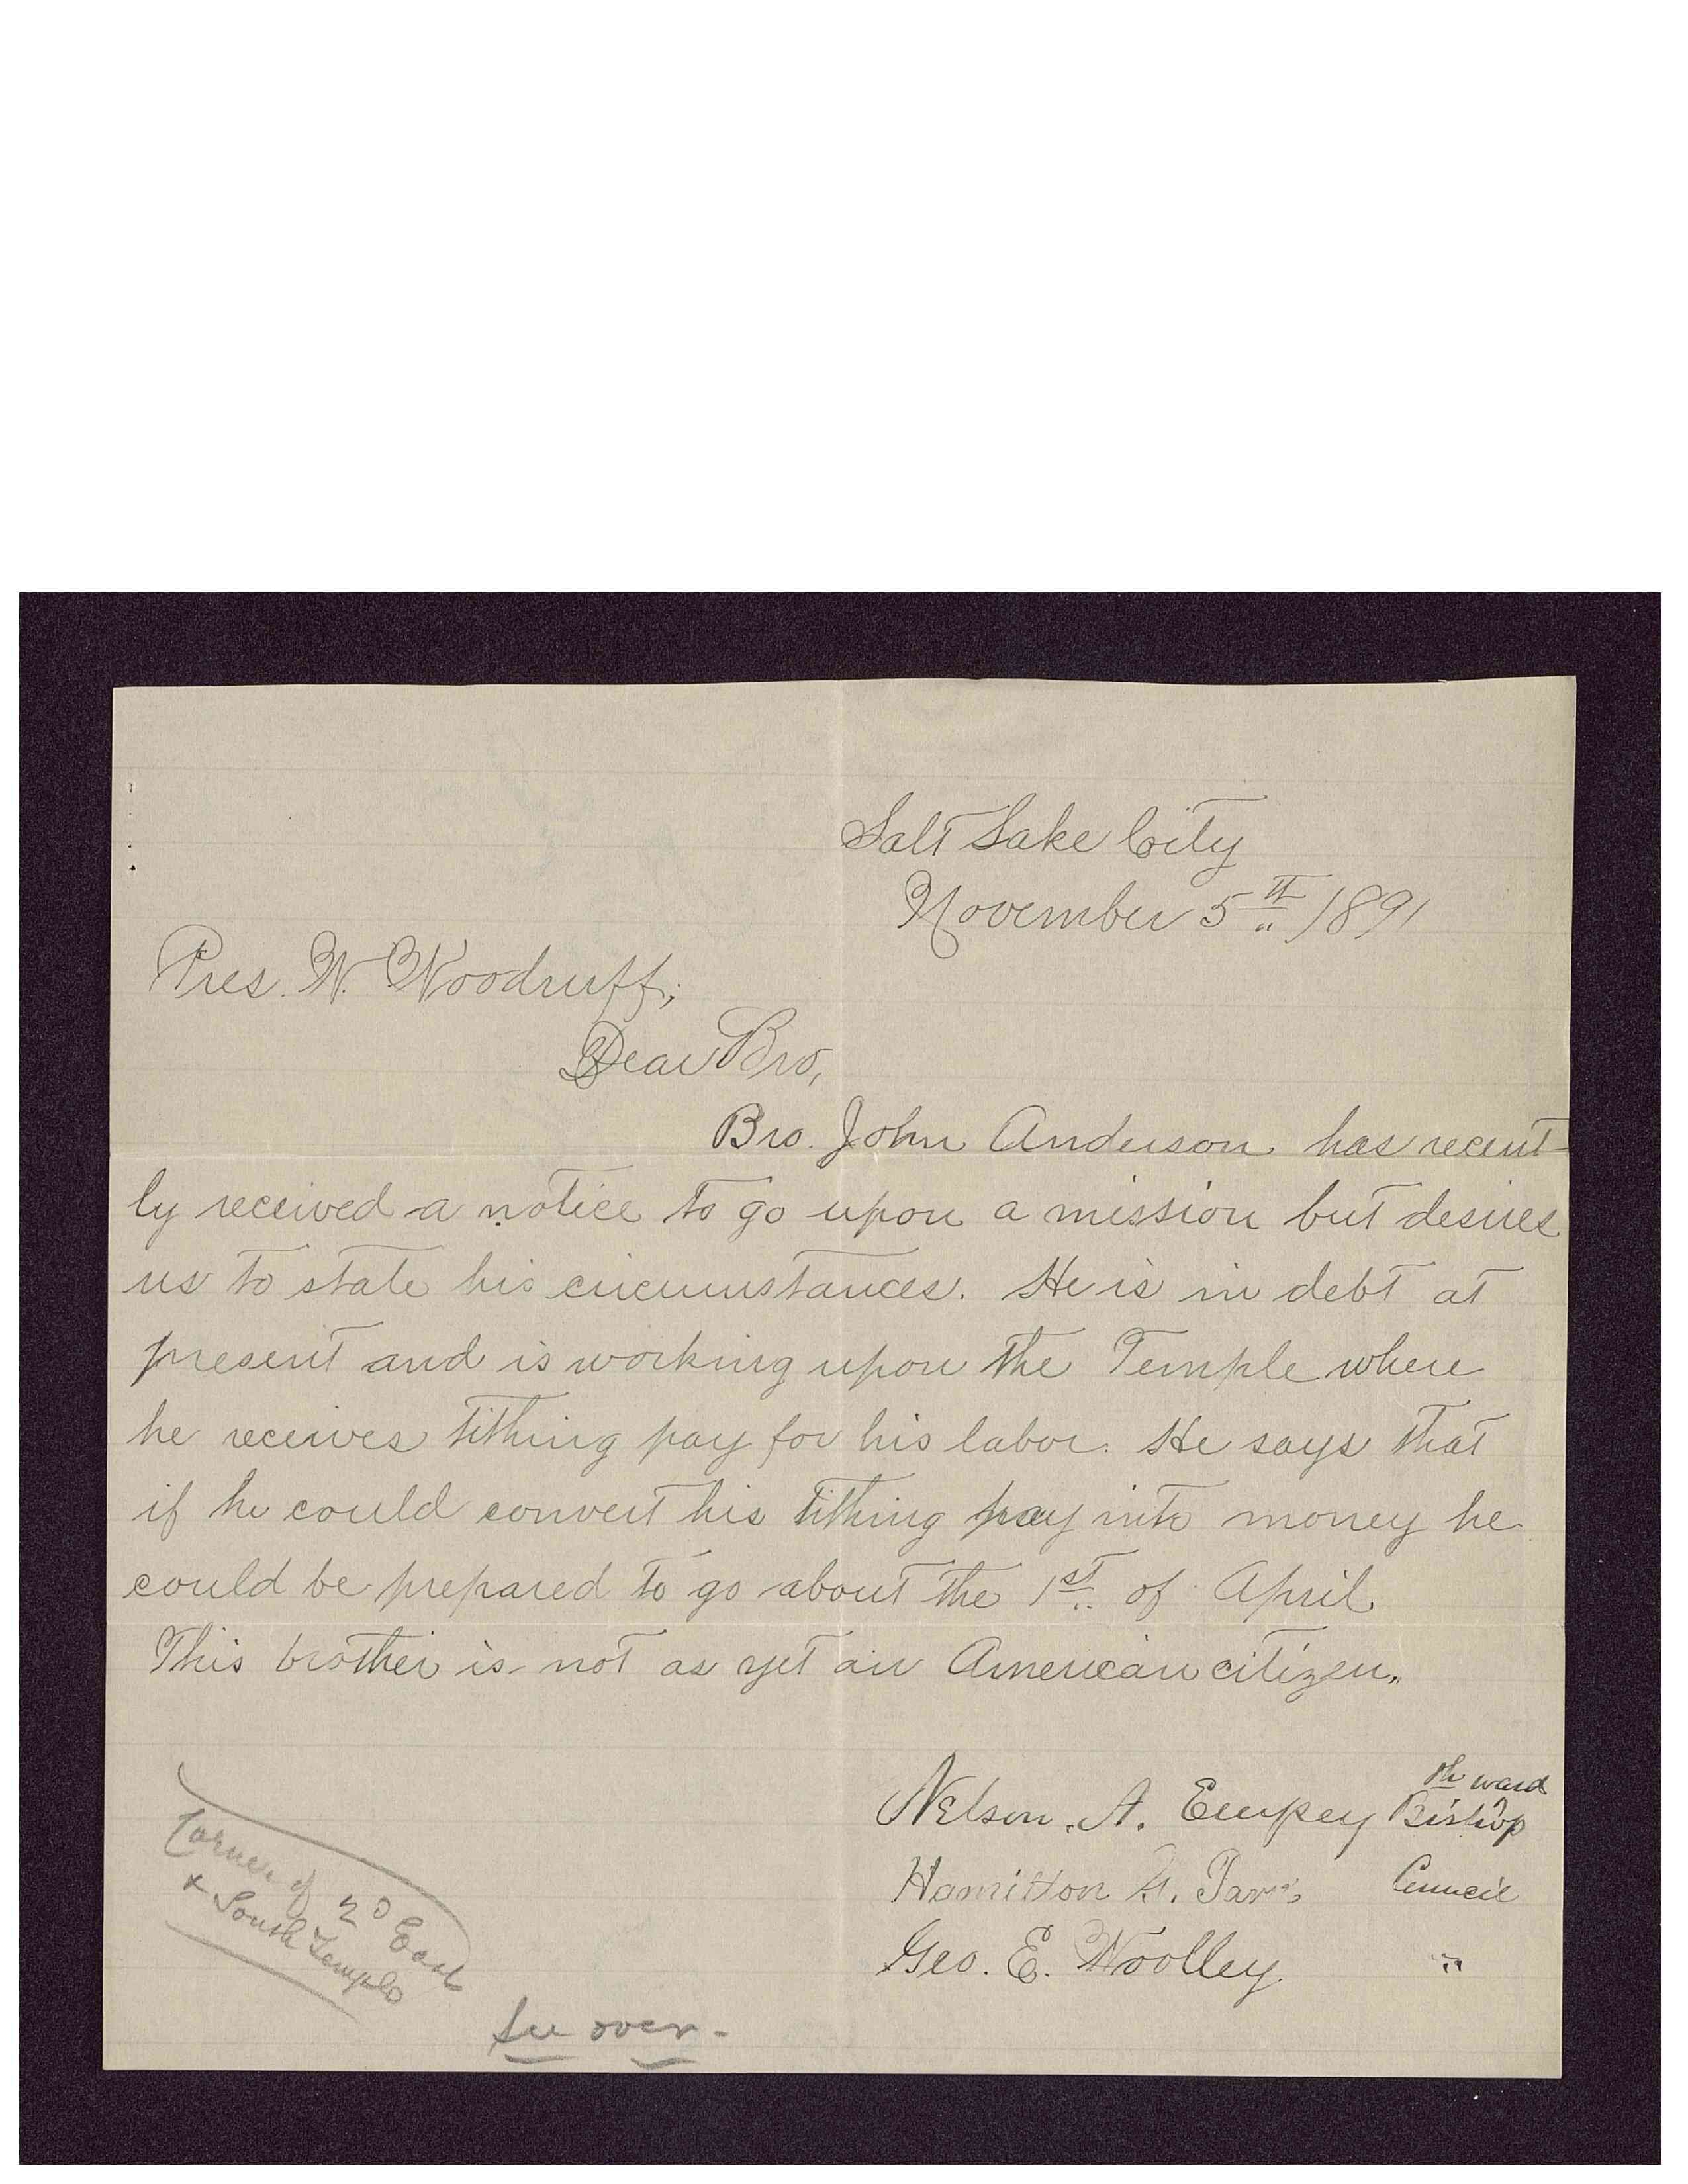 Salt Lake City
November 5th 1891
Pres. W. Woodruff;
Dear Bro,
Bro. John Anderson has recent-
ly received a notice to go upon a mission but desires
us to state his circumstances. He is in debt at
present and is working upon the Temple where
he receives tithing pay for his labor. He says that
if he could convert his tithing pay into money he
could be prepared to go about the 1st of April.
This brother is not as yet an American citizen.
th ward
Nelson. A. Empey Bishop
Hamilton G. Park Council
Geo. E. Woolley. "
Corner of 2D East
& South Temple
See over-